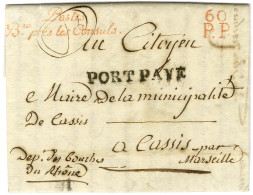 Poste
Bau près les Consuls.
60
P.P
Au Citoyen
PORT PAYÉ
Maire de la municipalité
De Cassis
a Cassis par
Marseille
Dep. des Bouches
du Rhône